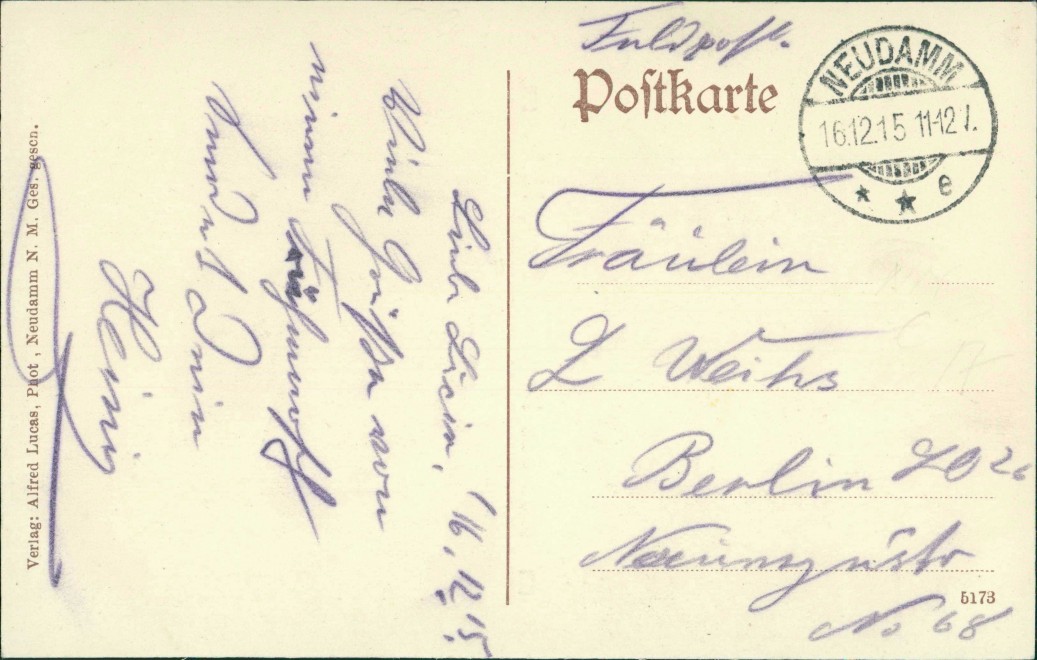 Feldpost.
Postkarte
NEUDAMM
16.12.15 11-12 V.
* * e
Fräulein
L Weihs
Berlin SO 26
Naunynstr
No 68
5173
16.12.15.
Liebe
Viele Grüße von
meinem
Dein
Verlag: Alfred Lucas, Phot, Neudamm N. M. Ges. gesch.